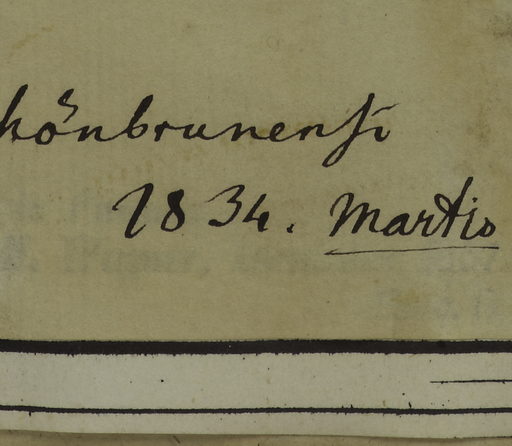 hönbrunensi
1834. Martio